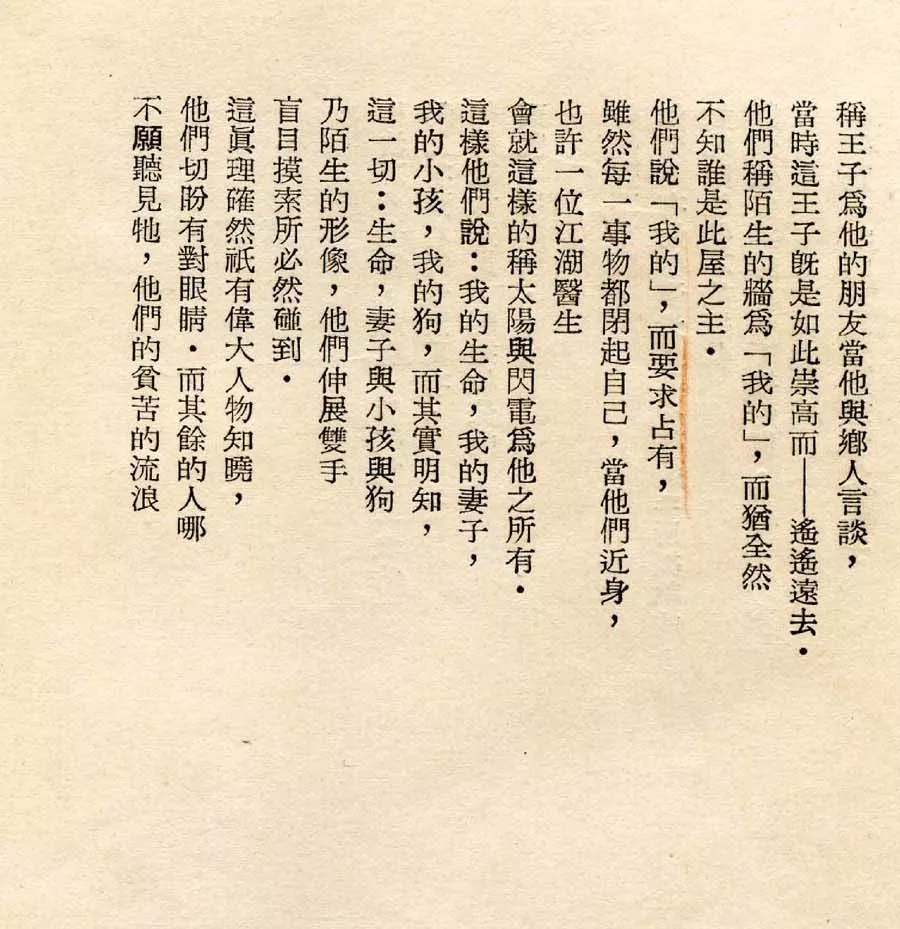 稱王子爲他的朋友當他與鄉人言談，
當時這王子旣是如此崇高而——遙遙遠去．
他們稱陌生的牆爲「我的」，而猶全然
不知誰是此屋之主．
他們說「我的」，而要求占有，
雖然每一事物都閉起自己，當他們近身，
也許一位江湖醫生
會就這樣的稱太陽與閃電爲他之所有．
這樣他們說：我的生命，我的妻子，
我的小孩，我的狗，而其實明知，
這一切：生命，妻子與小孩與狗
乃陌生的形像，他們伸展雙手
盲目摸索所必然碰到．
這眞理確然祇有偉大人物知曉，
他們切盼有對眼睛．而其餘的人哪
不願聽見牠，他們的貧苦的流浪